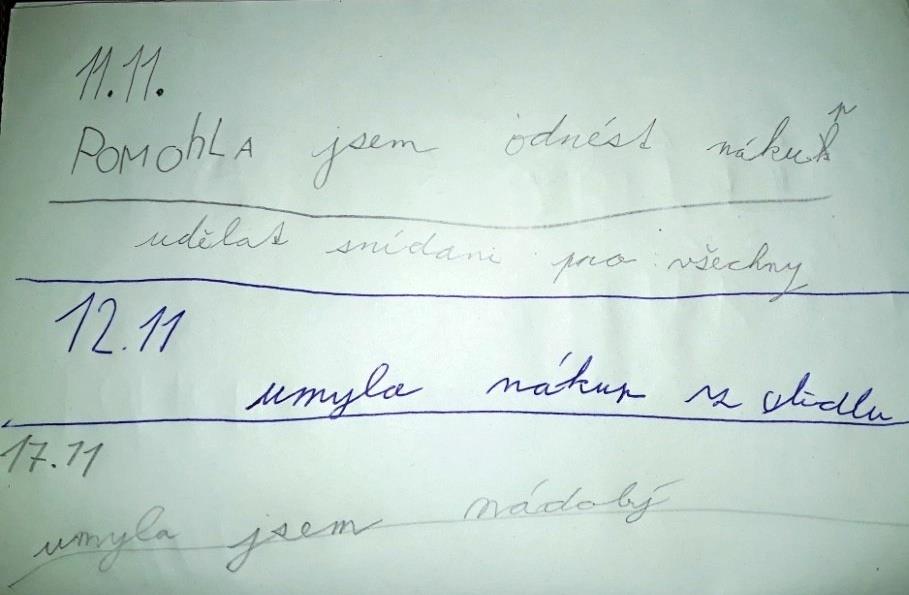 11.11.
POMOhLA jsem odnést nákup
udělat snídani pro všechny
12.11
umyla nákup z
17.11
umyla jsem nádobý